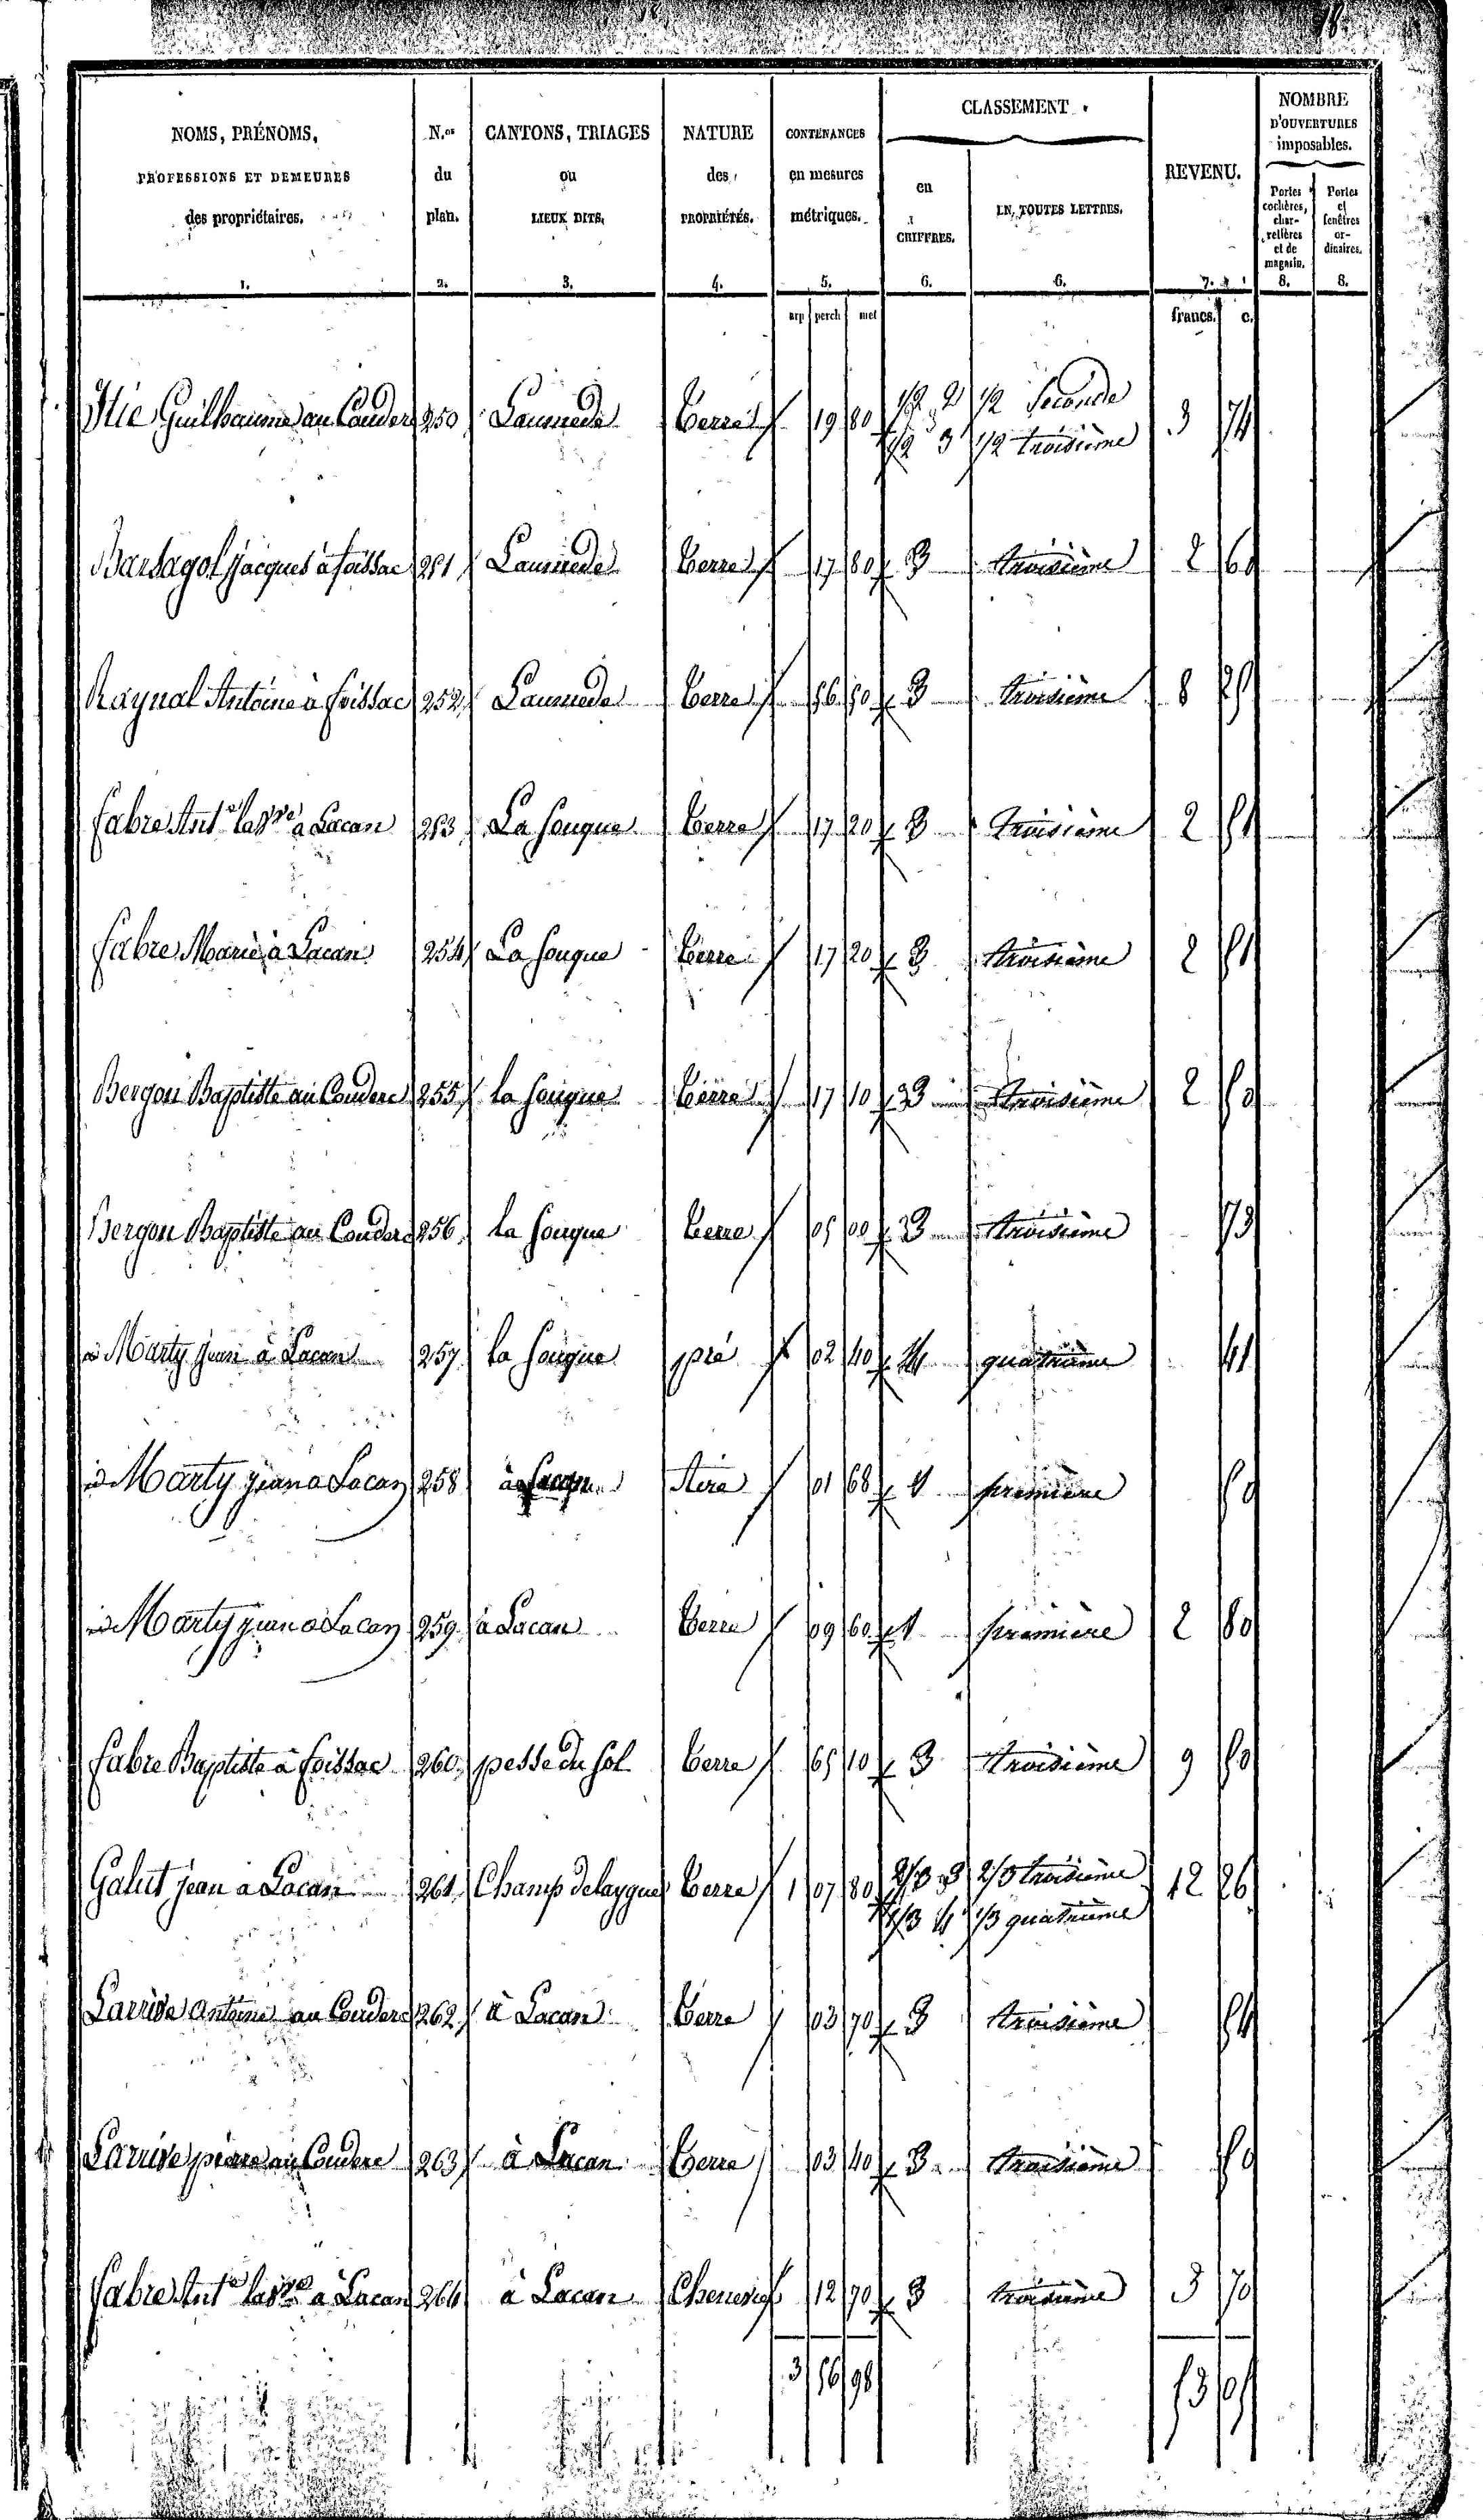 98.
NOMS, PRÉNOMS, PROFESSIONS ET DEMEURES des propriétaires. 1.
N.os du plan. 2.
CANTONS, TRIAGES ou LIEUX DITS. 3.
NATURE des PROPRIÉTÉS. 4.
CONTENANCES en mesures métriques. 5.
CLASSEMENT.
en CHIFFRES. 6.
EN TOUTES LETTRES. 6.
REVENU. 7.
NOMBRE D'OUVERTURES imposables.
Portes cochères, charretières et de magasin. 8.
Portes et fenêtres ordinaires. 8.
arp perch met francs. c.
Guilhaume au Couderc 250 Terre 19 80 1/2 2 1/2 Seconde 3 74
1/2 3 1/2 troisième
Jacques à foissac 251 Terre 17 80 3 troisième 2 60
Raynal Antoine à foissac 252 Terre 56 50 3 troisième 8 25
fabre Ant.e à Lacan 253 La Souque Terre 17 20 3 troisième 2 51
fabre Marie à Lacan 254 La Souque Terre 17 20 3 troisième 2 51
Bergon Baptiste au Couderc 255 la Souque Terre 17 10 3 troisième 2 50
Bergon Baptiste au Couderc 256 la Souque Terre 05 00 3 troisième 73
Marty jean à Lacan 257 la Souque pré 02 40 4 quatrième 41
Marty jean a Lacan 258 01 68 1 première 50
Marty jean a Lacan 259 à Lacan Terre 09 60 1 première 2 80
fabre Baptiste à foissac 260 pesse du sol Terre 65 10 3 troisième 9 50
Galut jean a Lacan 261 Terre 1 07 80 2/3 3 2/3 troisième 12 26
1/3 4 1/3 quatrième
Antoine au Couderc 262 à Lacan Terre 03 70 3 troisième 54
pierre au Couderc 263 à Lacan Terre 03 40 3 troisième 50
fabre Ant.e à Lacan 264 à Lacan 12 70 3 troisième 3 70
3 56 98